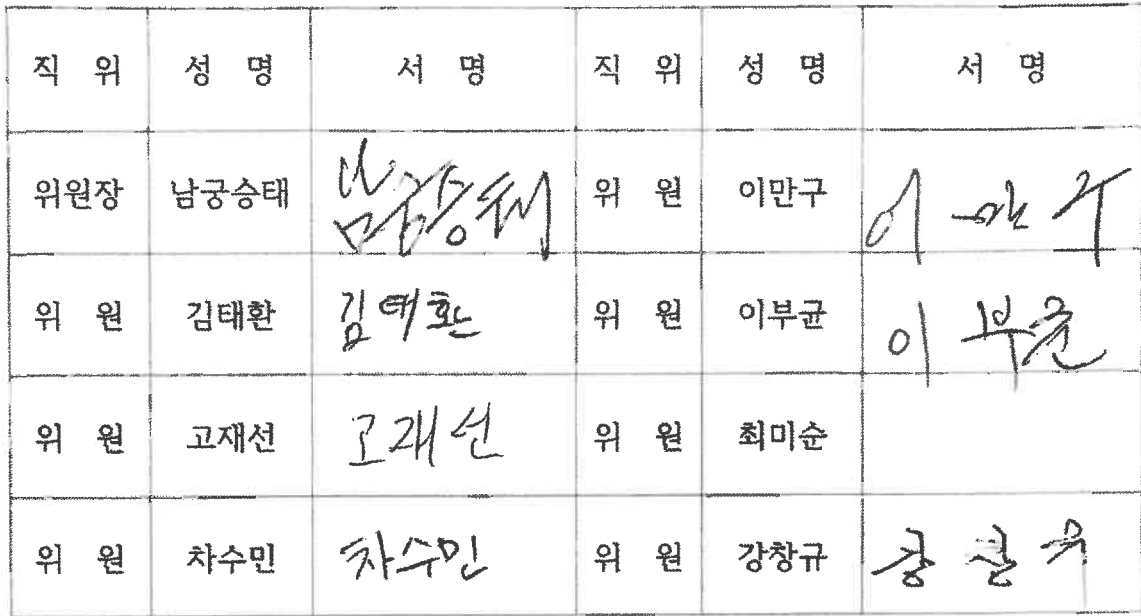 직 위 성 명 서 명 직 위 성 명 서 명
위원장 남궁승태 남궁승태 위 원 이만구 이만구
위 원 김태환 김태환 위 원 이부균 이부균
위 원 고재선 고재선 위 원 최미순
위 원 차수민 차수민 위 원 강창규 강창규